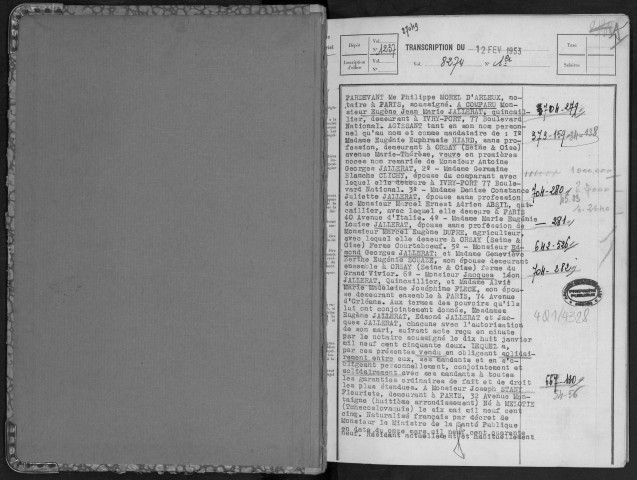 27049
Dépôt
Vol.
N° 1237
TRANSCRIPTION DU 12 FEV 1953
Taxe
Inscription
d'office
Vol.
N°
Vol. 8274 N° 1er
Salaires
PARDEVANT Me Philippe MOREL D'ARLEUX, no-
taire à PARIS, soussigné. A COMPARU Mon-
sieur Eugène Jean Marie JALLERAT, quincail-
lier, demeurant à IVRY-PORT, 77 Boulevard
National. AGISSANT tant en son nom person-
nel qu'au nom et comme mandataire de : 1°
Madame Eugénie Euphrasie HYARD, sans pro-
fession, demeurant à ORSAY (Seine & Oise)
avenue Marie-Thérèse, veuve en premières
noces non remariée de Monsieur Antoine
Georges JALLERAT, 2° - Madame Germaine
Blanche CLICHY, épouse du comparant avec
lequel elle demeure à IVRY-PORT 77 Boule-
vard National. 3° - Madame Denise Constance
Juliette JALLERAT, épouse sans profession
de Monsieur Marcel Ernest Adrien ABEIL, quin-
caillier, avec lequel elle demeure à PARIS
40 Avenue d'Italie. 4° - Madame Marie Eugénie
Louise JALLERAT, épouse sans profession de
Monsieur Marcel Eugène DUPRE, agriculteur,
avec lequel elle demeure à ORSAY (Seine &
Oise) Ferme Courtaboeuf. 5° - Monsieur Ed-
mond Georges JALLERAT; et Madame Geneviève
Berthe Eugénie, son épouse demeurant
ensemble à ORSAY (Seine & Oise) ferme du
Grand Vivier. 6° - Monsieur Jacques Léon
JALLERAT, Quincaillier, et Madame
Marie Madeleine Joséphine FLECK, son épou-
se demeurant ensemble à PARIS, 74 Avenue
d'Orléans. Aux termes des pouvoirs qu'ils
lui ont conjointement donnés, Mesdames
Eugène JALLERAT, Edmond JALLERAT et Jac-
ques JALLERAT, chacune avec l'autorisation
de son mari, suivant acte reçu en minute
par le notaire soussigné le dix huit janvier
mil neuf cent cinquante deux. LEQUEL a,
par ces présentes vendu en obligeant solidai-
rement entre eux, ses mandants et en s'o-
bligeant personnellement, conjointement et
solidairement avec ses mandants à toutes
les garanties ordinaires de fait et de droit
les plus étendues. A Monsieur Joseph STARY
Fleuriste, demeurant à PARIS, 32 Avenue Mon-
taigne (huitième arrondissement) Né à
(Tchécoslovaquie) le dix mai mil neuf cent
cinq. Naturalisé français par décret de
Monsieur le Ministre de la Santé Publique
en date du onze mars mil neuf cent quarante
neuf. Résidant actuellement et habituellement
704-279
373-159
704-280
281
642-526
704-282
4Q1/4328
557-160
54-56